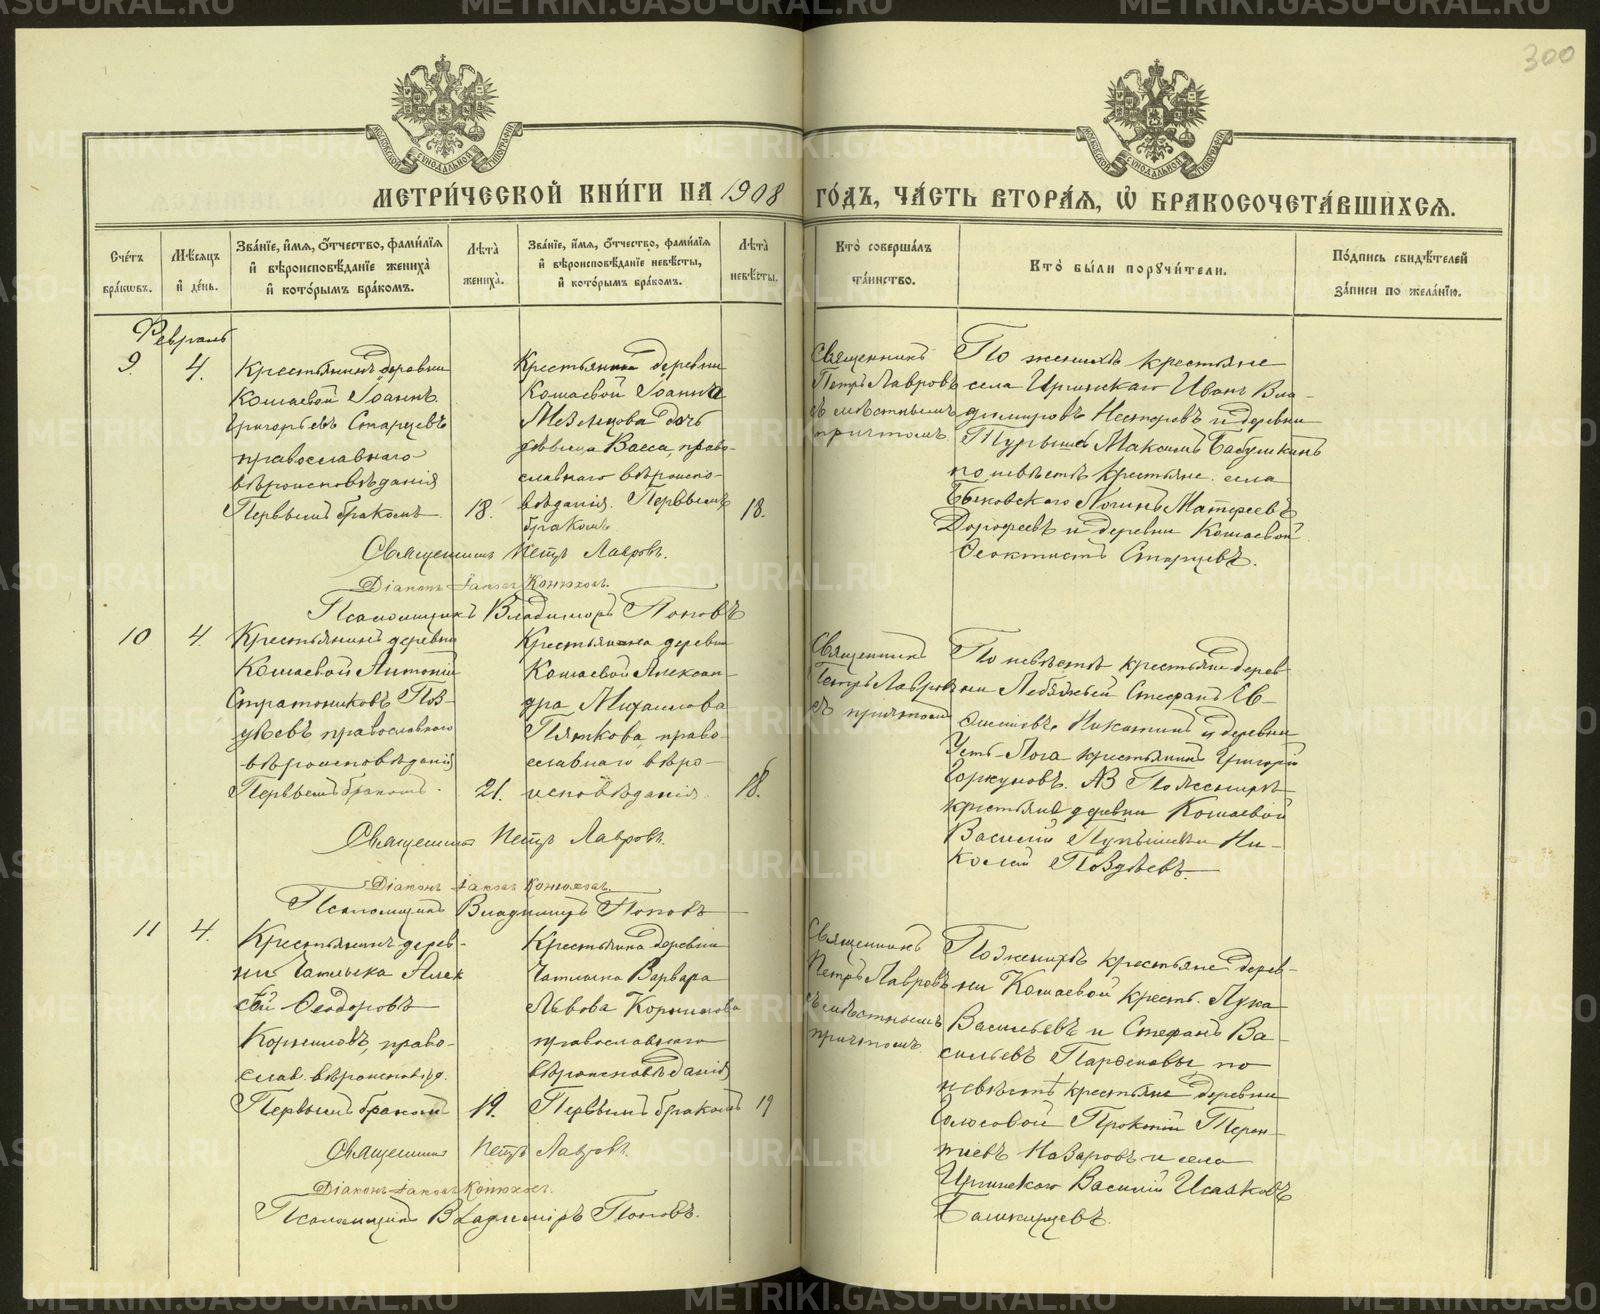 300
МОСКОВСКОЙ СѴНОДАЛЬНОЙ ТИПОГРАФІИ
МОСКОВСКОЙ СѴНОДАЛЬНОЙ ТИПОГРАФІИ
МЕТРИ́ЧЕСКОЙ КНИ́ГИ НА 1908 ГО́ДЪ, ЧА́СТЬ ВТОРА́Я, Ѡ҆ БРАКОСОЧЕТА́ВШИХСЯ.
Сче́тъ бра́ковъ.
Мѣ́сяцъ и҆ де́нь.
Зва́нїе, и҆́мя, ѻ҆́тчество, фами́лїя и҆ вѣроисповѣ́данїе жениха̀ и҆ кото́рымъ бра́комъ.
Лѣ́та жениха̀.
Зва́нїе, и҆́мя, ѻ҆́тчество, фами́лїя и҆ вѣроисповѣ́данїе невѣ́сты, и҆ кото́рымъ бра́комъ.
Лѣ́та невѣ́сты.
Кто̀ соверша́лъ та́инство.
Кто̀ бы́ли порꙋчи́тели.
По́дпись свидѣ́телей за́писи по жела́нїю.
Февраль
9
4.
Крестьянинъ деревни
Кошаевой Іоаннъ
Григорьевъ Старцевъ
православнаго
вѣроисповѣданія
Первымъ бракомъ
18.
Крестьянина деревни
Кошаевой Іоанна
Мѣзенцова дочь
дѣвица Васса, право-
славнаго вѣроиспо-
вѣданія. Первымъ
бракомъ
18.
Священникъ
Петръ Лавровъ
съ мѣстнымъ
причтомъ
По женихѣ крестьяне
села Иргинскаго Иванъ Вла-
димировъ Нестеровъ и деревни
Максимъ Бабушкинъ
по невѣстѣ крестьяне села
Быковскаго Логинъ Матфеевъ
Дорофеевъ и деревни Кошаевой
Феоктистъ Старцевъ.
Священникъ Петръ Лавровъ.
Діаконъ Іаковъ Конюховъ.
Псаломщикъ Владимиръ Поповъ
10
4.
Крестьянинъ деревни
Кошаевой Антоній
Стратониковъ Поз-
дѣевъ православнаго
вѣроисповѣданія
Первымъ бракомъ.
21.
Крестьянка деревни
Кошаевой Алексан-
дра Михаилова
Пяткова, право-
славнаго вѣро-
исповѣданія
18.
Священникъ
Петръ Лавровъ
съ причтомъ
По невѣстѣ крестьяне дерев-
ни Лебяжьей Стефанъ Ев-
Никитинъ и деревни
Усть-Лога крестьянинъ Григорій
Горкуновъ. По женихѣ
крестьяне деревни Кошаевой
Василій Ни-
колай Поздѣевъ.
Священникъ Петръ Лавровъ.
Діаконъ Іаковъ Конюховъ.
Псаломщикъ Владимиръ Поповъ
11
4.
Крестьянинъ дерев-
ни Чатлыка Алек
сѣй Феодоровъ
Корниловъ, право-
слав. вѣроисповѣд.
Первымъ бракомъ
19.
Крестьянка деревни
Чатлыка Варвара
Львова Корнилова
православнаго
вѣроисповѣданія
Первымъ бракомъ
19
Священникъ
Петръ Лавровъ
съ мѣстнымъ
причтомъ
По женихѣ крестьяне дерев-
ни Кошаевой крест. Лука
Васильевъ и Стефанъ Ва-
сильевъ Парфеновы по
невѣстѣ крестьяне деревни
Прокопій Терен-
тіевъ Назаровъ и села
Иргинскаго Василій Исааковъ
Башкирцевъ.
Священникъ Петръ Лавровъ.
Діаконъ Іаковъ Конюховъ.
Псаломщикъ Владиміръ Поповъ.
METRIKI.GASO-URAL.RU